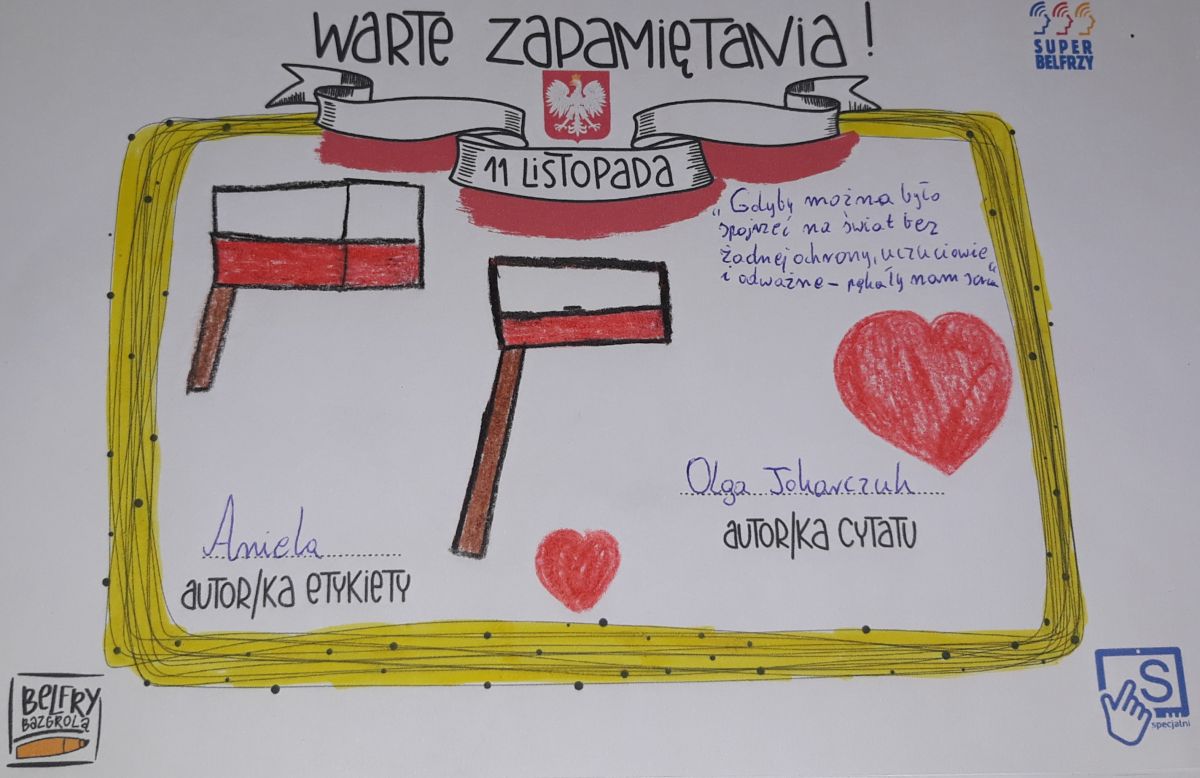 WARTE ZAPAMIĘTANIA!
SUPER
BELFRZY
11 LISTOPADA
„Gdyby można było
spojrzeć na świat bez
żadnej ochrony, uczuciowie
i odważnie – pękały nam serca"
Olga Tokarczuk
AUTOR/KA CYTATU
Aniela
AUTOR/KA ETYKIETY
BELFRY
BAZGROLĄ
S
specjalni